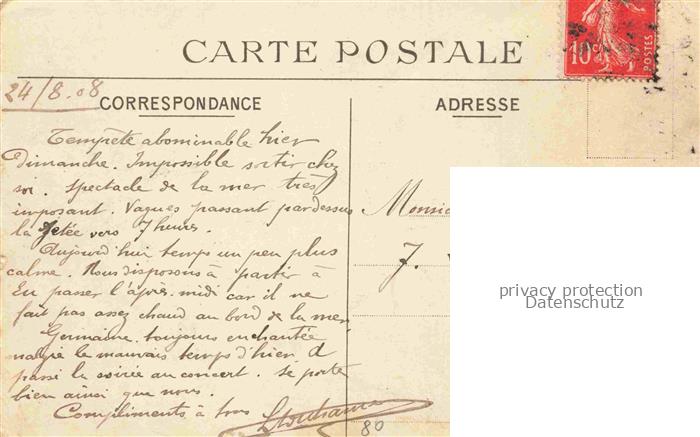 CARTE POSTALE
10c
POSTES
24/8.08
CORRESPONDANCE
ADRESSE
Tempête abominable hier
dimanche. Impossible sortir chez
soi. Spectacle de la mer très
imposant. Vagues passant par dessus
la Jetée vers 7 heures.
Aujourd'hui temps un peu plus
calme. Nous disposons à partir à
Eu passer l'après-midi car il ne
fait pas assez chaud au bord de la mer.
Germaine toujours enchantée
malgré le mauvais temps d'hier. A
passé la soirée au concert. Se porte
bien ainsi que nous.
Compliments à tous
Monsie
J.
privacy protection
Datenschutz
80